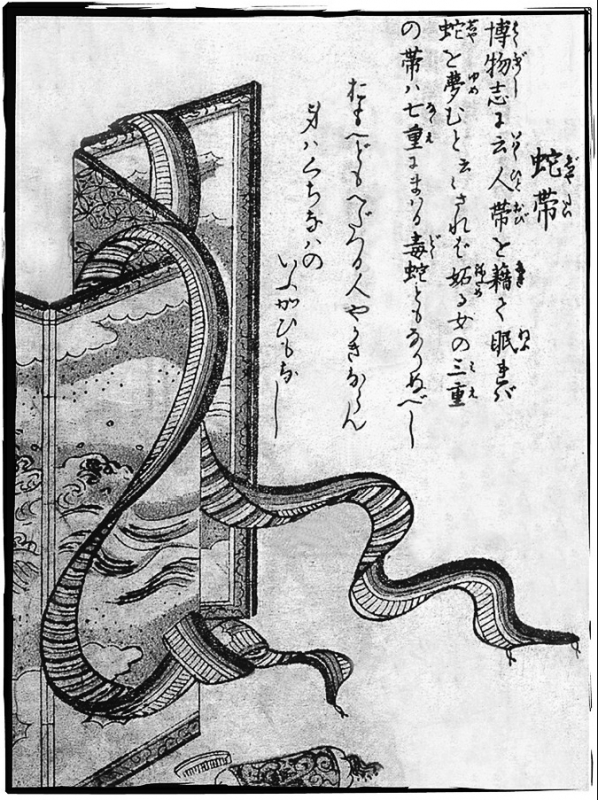 蛇帯
じやたい
博物志に云人帯を藉て眠れば
蛇を夢むと云々されば妬る女の三重
の帯は七重にまはる毒蛇ともなりぬべし
おもへどもへだつる人やかきならん
身はくちなはの
いふかひもなし